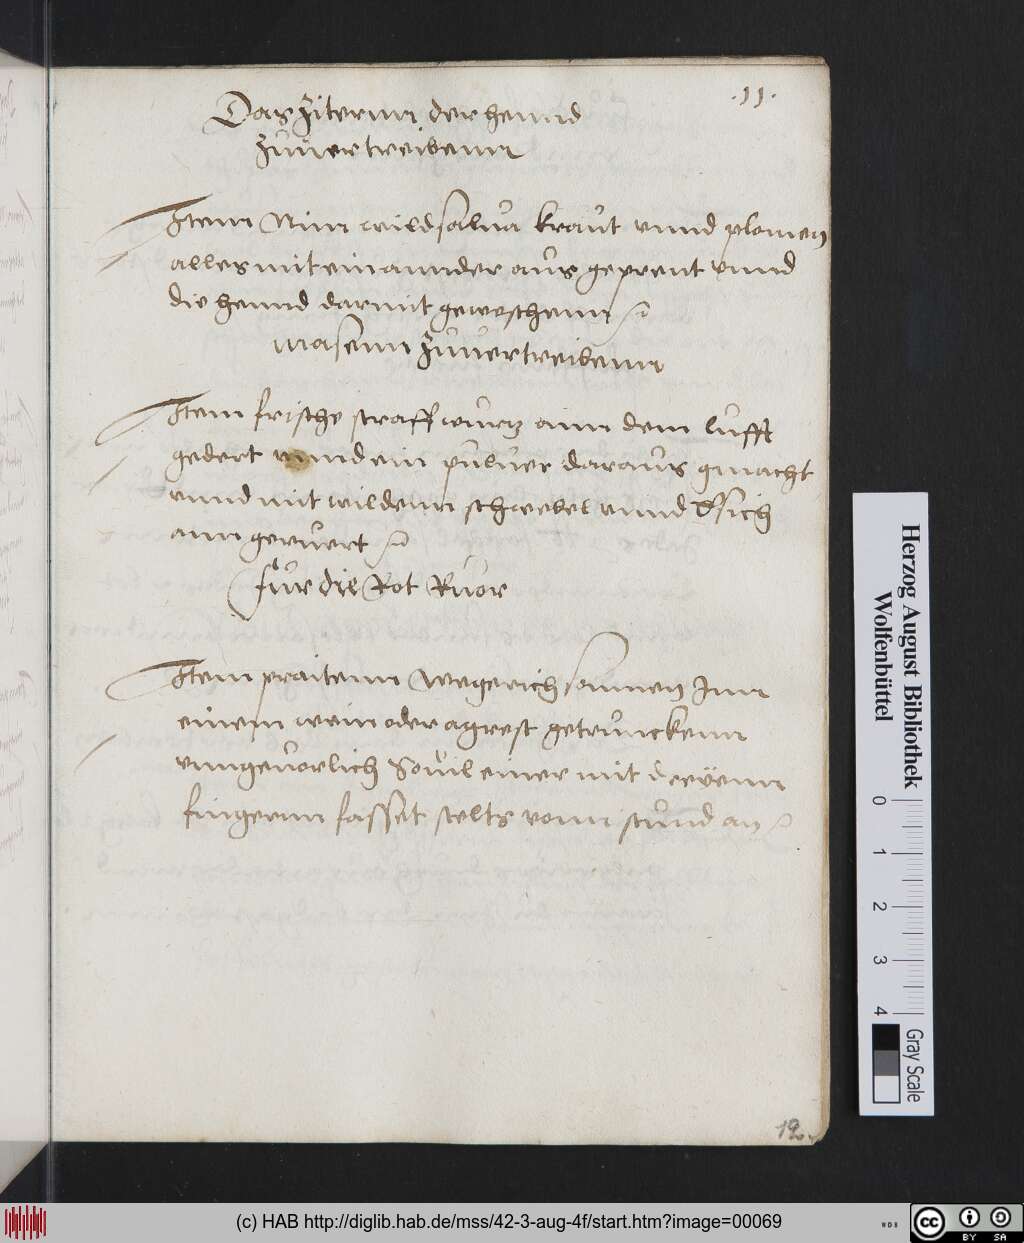 .11.
Das Ziternn der hennd
Zuuertreibenn
Item Nim wildsalua kraut vnnd plomen
alles mit einannder aus geprent vnnd
die hennd darmit gewaschenn
Masenn Zuuertreibenn
Item frische straffwurtz ann dem lufft
gedert vnnd ein puluer daraus gmacht
vnnd mit wildenn schwebel vnnd Essich
ann geruert
für die Rot Ruor
Item praitenn Wegerich sonnen Inn
einem wein oder agrest getrunckenn
vnngeuorlich Souil einer mit dreÿenn
fingernn fasset stelts vonn stund an
12.
Herzog August Bibliothek
Wolfenbüttel
0 1 2 3 4
Gray Scale
(c) HAB http://diglib.hab.de/mss/42-3-aug-4f/start.htm?image=00069
WDB
cc BY SA